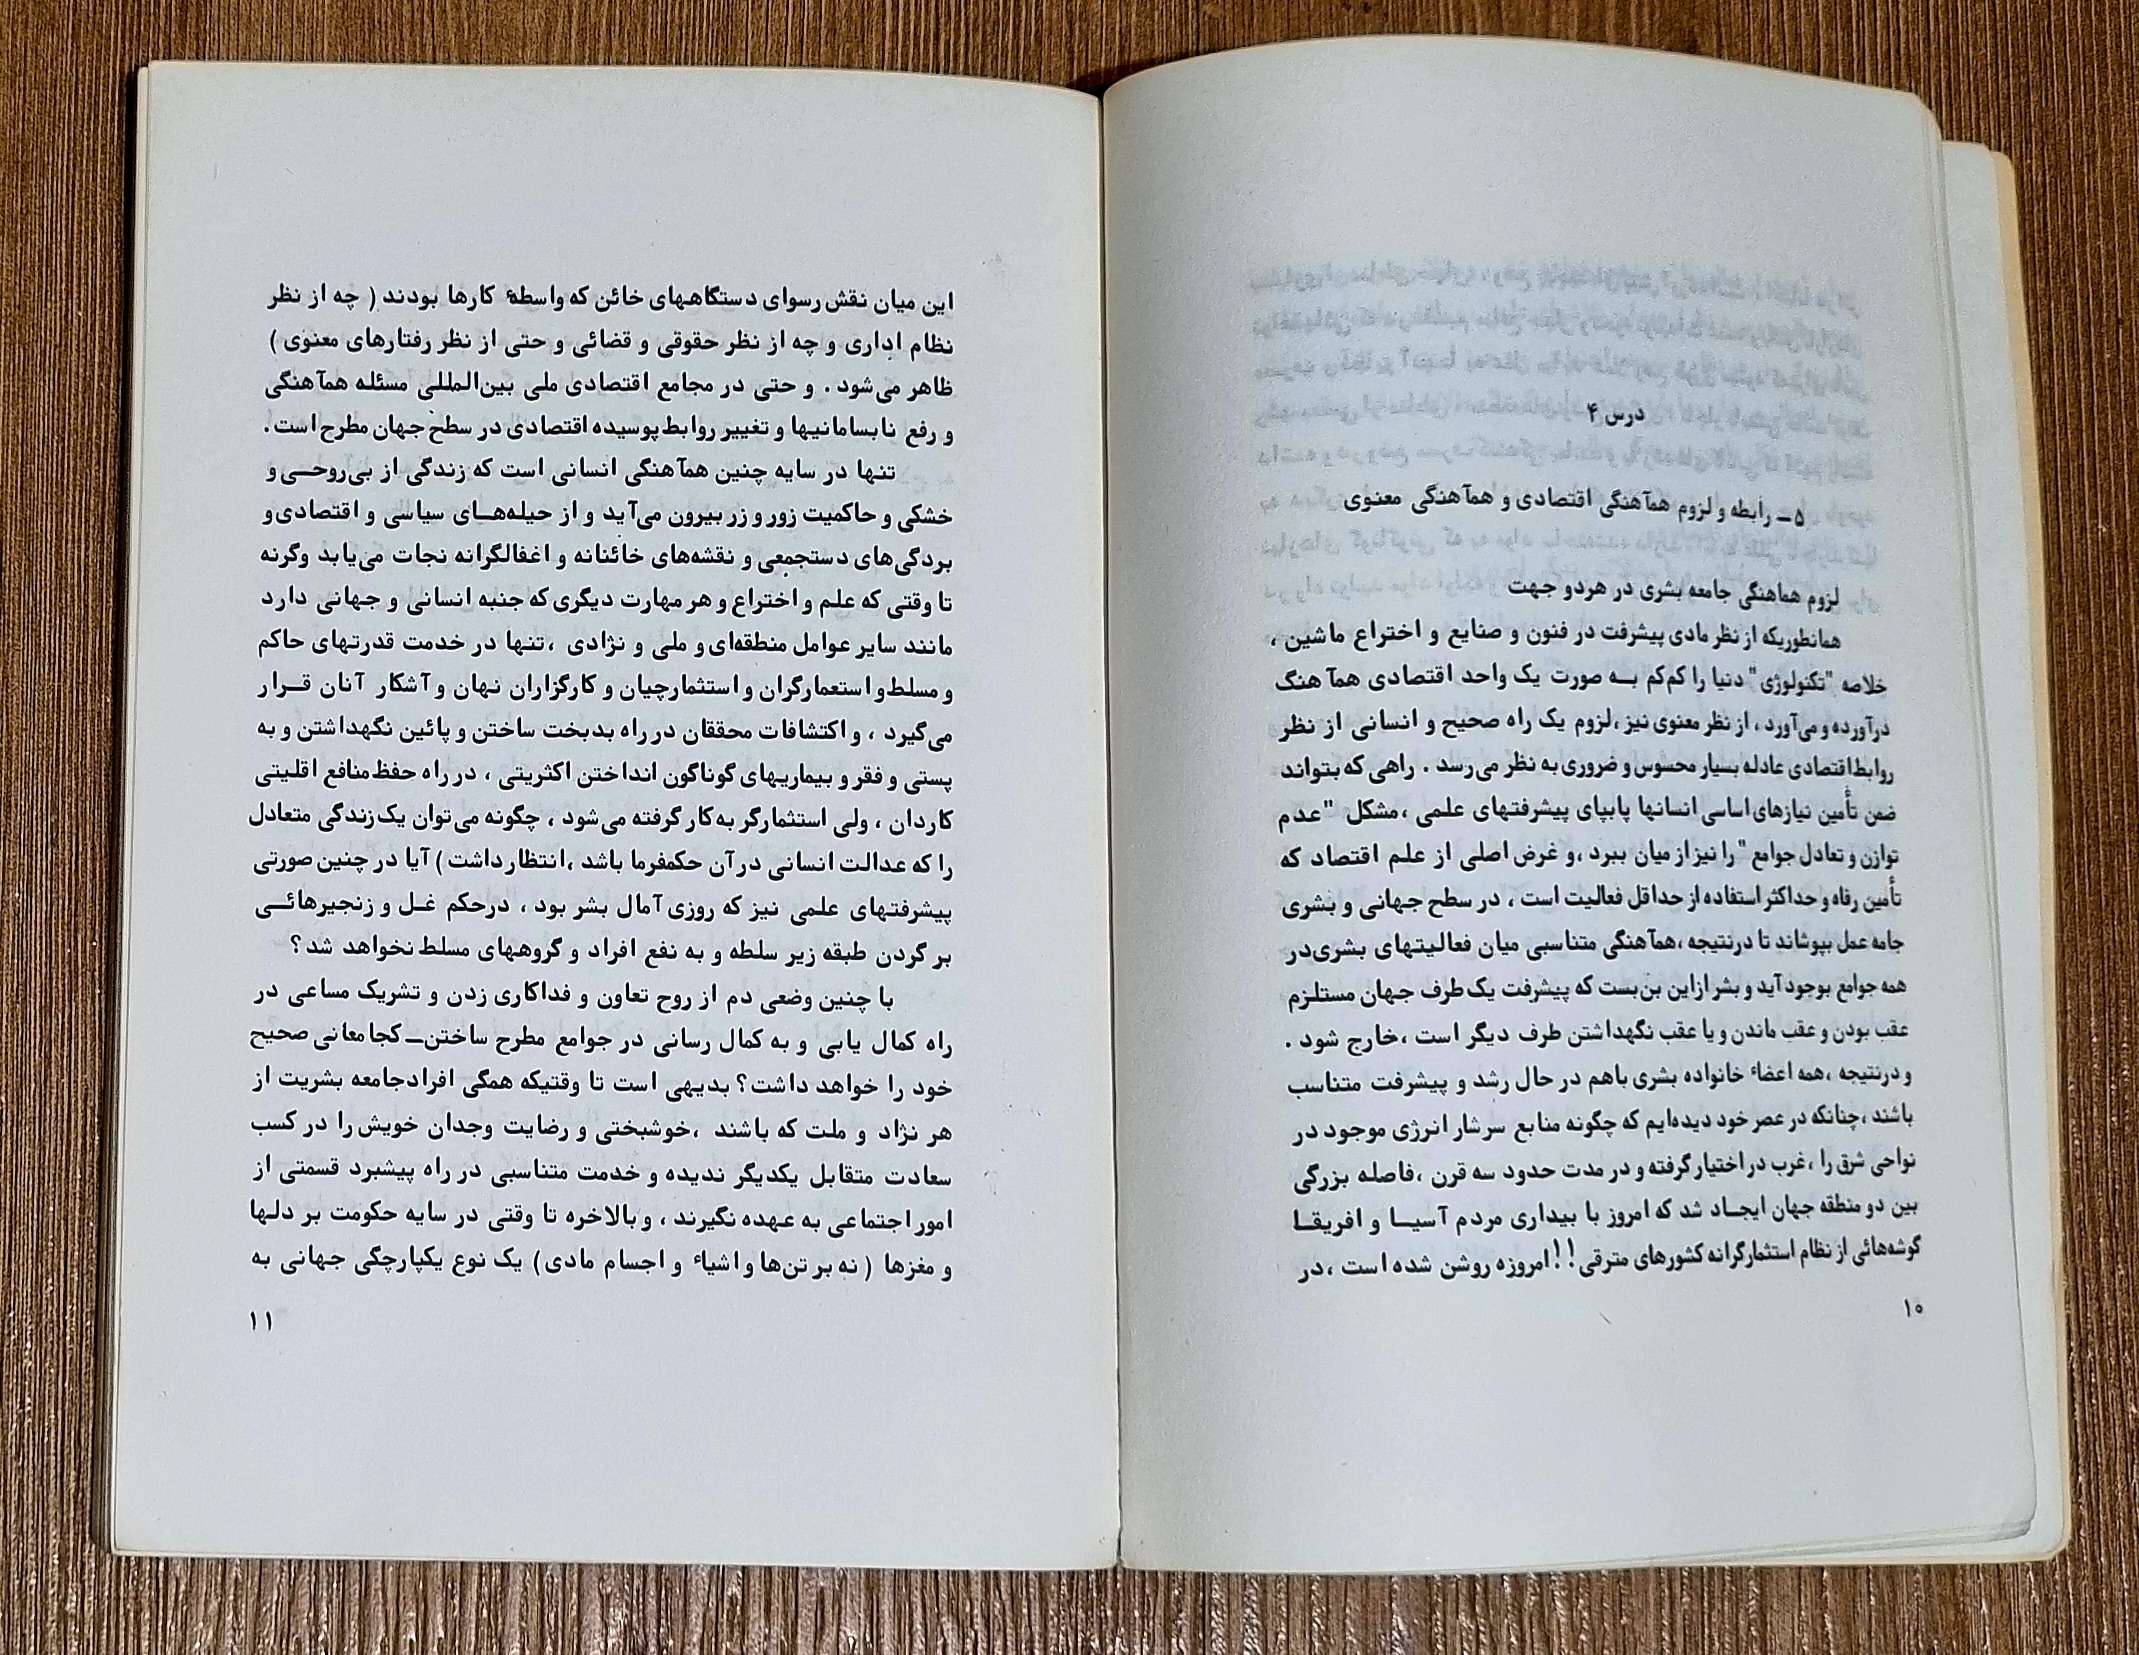 درس ۴
۵ـ رابطه و لزوم همآهنگی اقتصادی و همآهنگی معنوی
لزوم هماهنگی جامعه بشری در هردو جهت
همانطوریکه از نظر مادی پیشرفت در فنون و صنایع و اختراع ماشین ،
خلاصه "تکنولوژی" دنیا را کم‌کم بــه صورت یک واحد اقتصادی همآهنگ
درآورده و می‌آورد ، از نظر معنوی نیز ،لزوم یک راه صحیح و انسانی از نظر
روابط اقتصادی عادله بسیار محسوس و ضروری به نظر می‌رسد . راهی که بتواند
ضمن تأمین نیازهای اساسی انسانها پابپای پیشرفتهای علمی ،مشکل "عدم
توازن و تعادل جوامع "را نیز از میان ببرد ،و غرض اصلی از علم اقتصاد که
تأمین رفاه و حداکثر استفاده از حداقل فعالیت است ، در سطح جهانی و بشری
جامه عمل بپوشاند تا درنتیجه ،همآهنگی متناسبی میان فعالیتهای بشری‌در
همه جوامع بوجود آید و بشر ازاین بن‌بست که پیشرفت یک طرف جهان مستلزم
عقب بودن و عقب ماندن و یا عقب نگهداشتن طرف دیگر است ،خارج شود .
و درنتیجه ،همه اعضاء خانواده بشری باهم در حال رشد و پیشرفت متناسب
باشند ،چنانکه در عصر خود دیده‌ایم که چگونه منابع سرشار انرژی موجود در
نواحی شرق را ،غرب در اختیار گرفته و در مدت حدود سه قرن ،فاصله بزرگی
بین دو منطقه جهان ایجــاد شد که امروز با بیداری مردم آسیــا و افریقــا
گوشه‌هائی از نظام استثمارگرانه کشورهای مترقی!!امروزه روشن شده است ،در
۱۰
این میان نقش رسوای دستگاههای خائن که واسطهٔ کارها بودند ( چه از نظر
نظام اداری و چه از نظر حقوقی و قضائی و حتی از نظر رفتارهای معنوی )
ظاهر می‌شود . و حتی در مجامع اقتصادی ملی بین‌المللی مسئله همآهنگی
و رفع نابسامانیها و تغییر روابط پوسیده اقتصادی در سطح جهان مطرح است.
تنها در سایه چنین همآهنگی انسانی است که زندگی از بی‌روحــی و
خشکی و حاکمیت زور و زر بیرون می‌آید و از حیله‌هــای سیاسی و اقتصادی‌و
بردگی‌های دستجمعی و نقشه‌های خائنانه و اغفالگرانه نجات می‌یابد وگرنه
تا وقتی که علم و اختراع و هر مهارت دیگری که جنبه انسانی و جهانی دارد
مانند سایر عوامل منطقه‌ای و ملی و نژادی ،تنها در خدمت قدرتهای حاکم
و مسلط و استعمارگران و استثمارچیان و کارگزاران نهان و آشکار آنان قــرار
می‌گیرد ، و اکتشافات محققان در راه بدبخت ساختن و پائین نگهداشتن و به
پستی و فقر و بیماریهای گوناگون انداختن اکثریتی ، در راه حفظ منافع اقلیتی
کاردان ، ولی استثمارگر به کار گرفته می‌شود ، چگونه می‌توان یک زندگی متعادل
را که عدالت انسانی در آن حکمفرما باشد ،انتظار داشت) آیا در چنین صورتی
پیشرفتهای علمی نیز که روزی آمال بشر بود ، درحکم غــل و زنجیرهائــی
بر گردن طبقه زیر سلطه و به نفع افراد و گروههای مسلط نخواهد شد؟
با چنین وضعی دم از روح تعاون و فداکاری زدن و تشریک مساعی در
راه کمال یابی و به کمال رسانی در جوامع مطرح ساختن‌ــ کجا معانی صحیح
خود را خواهد داشت؟ بدیهی است تا وقتیکه همگی افرادجامعه بشریت از
هر نژاد و ملت که باشند ،خوشبختی و رضایت وجدان خویش را در کسب
سعادت متقابل یکدیگر ندیده و خدمت متناسبی در راه پیشبرد قسمتی از
امور اجتماعی به عهده نگیرند ، و بالاخره تا وقتی در سایه حکومت بر دلها
و مغزها ( نه بر تن‌ها و اشیاء و اجسام مادی) یک نوع یکپارچگی جهانی به
۱۱